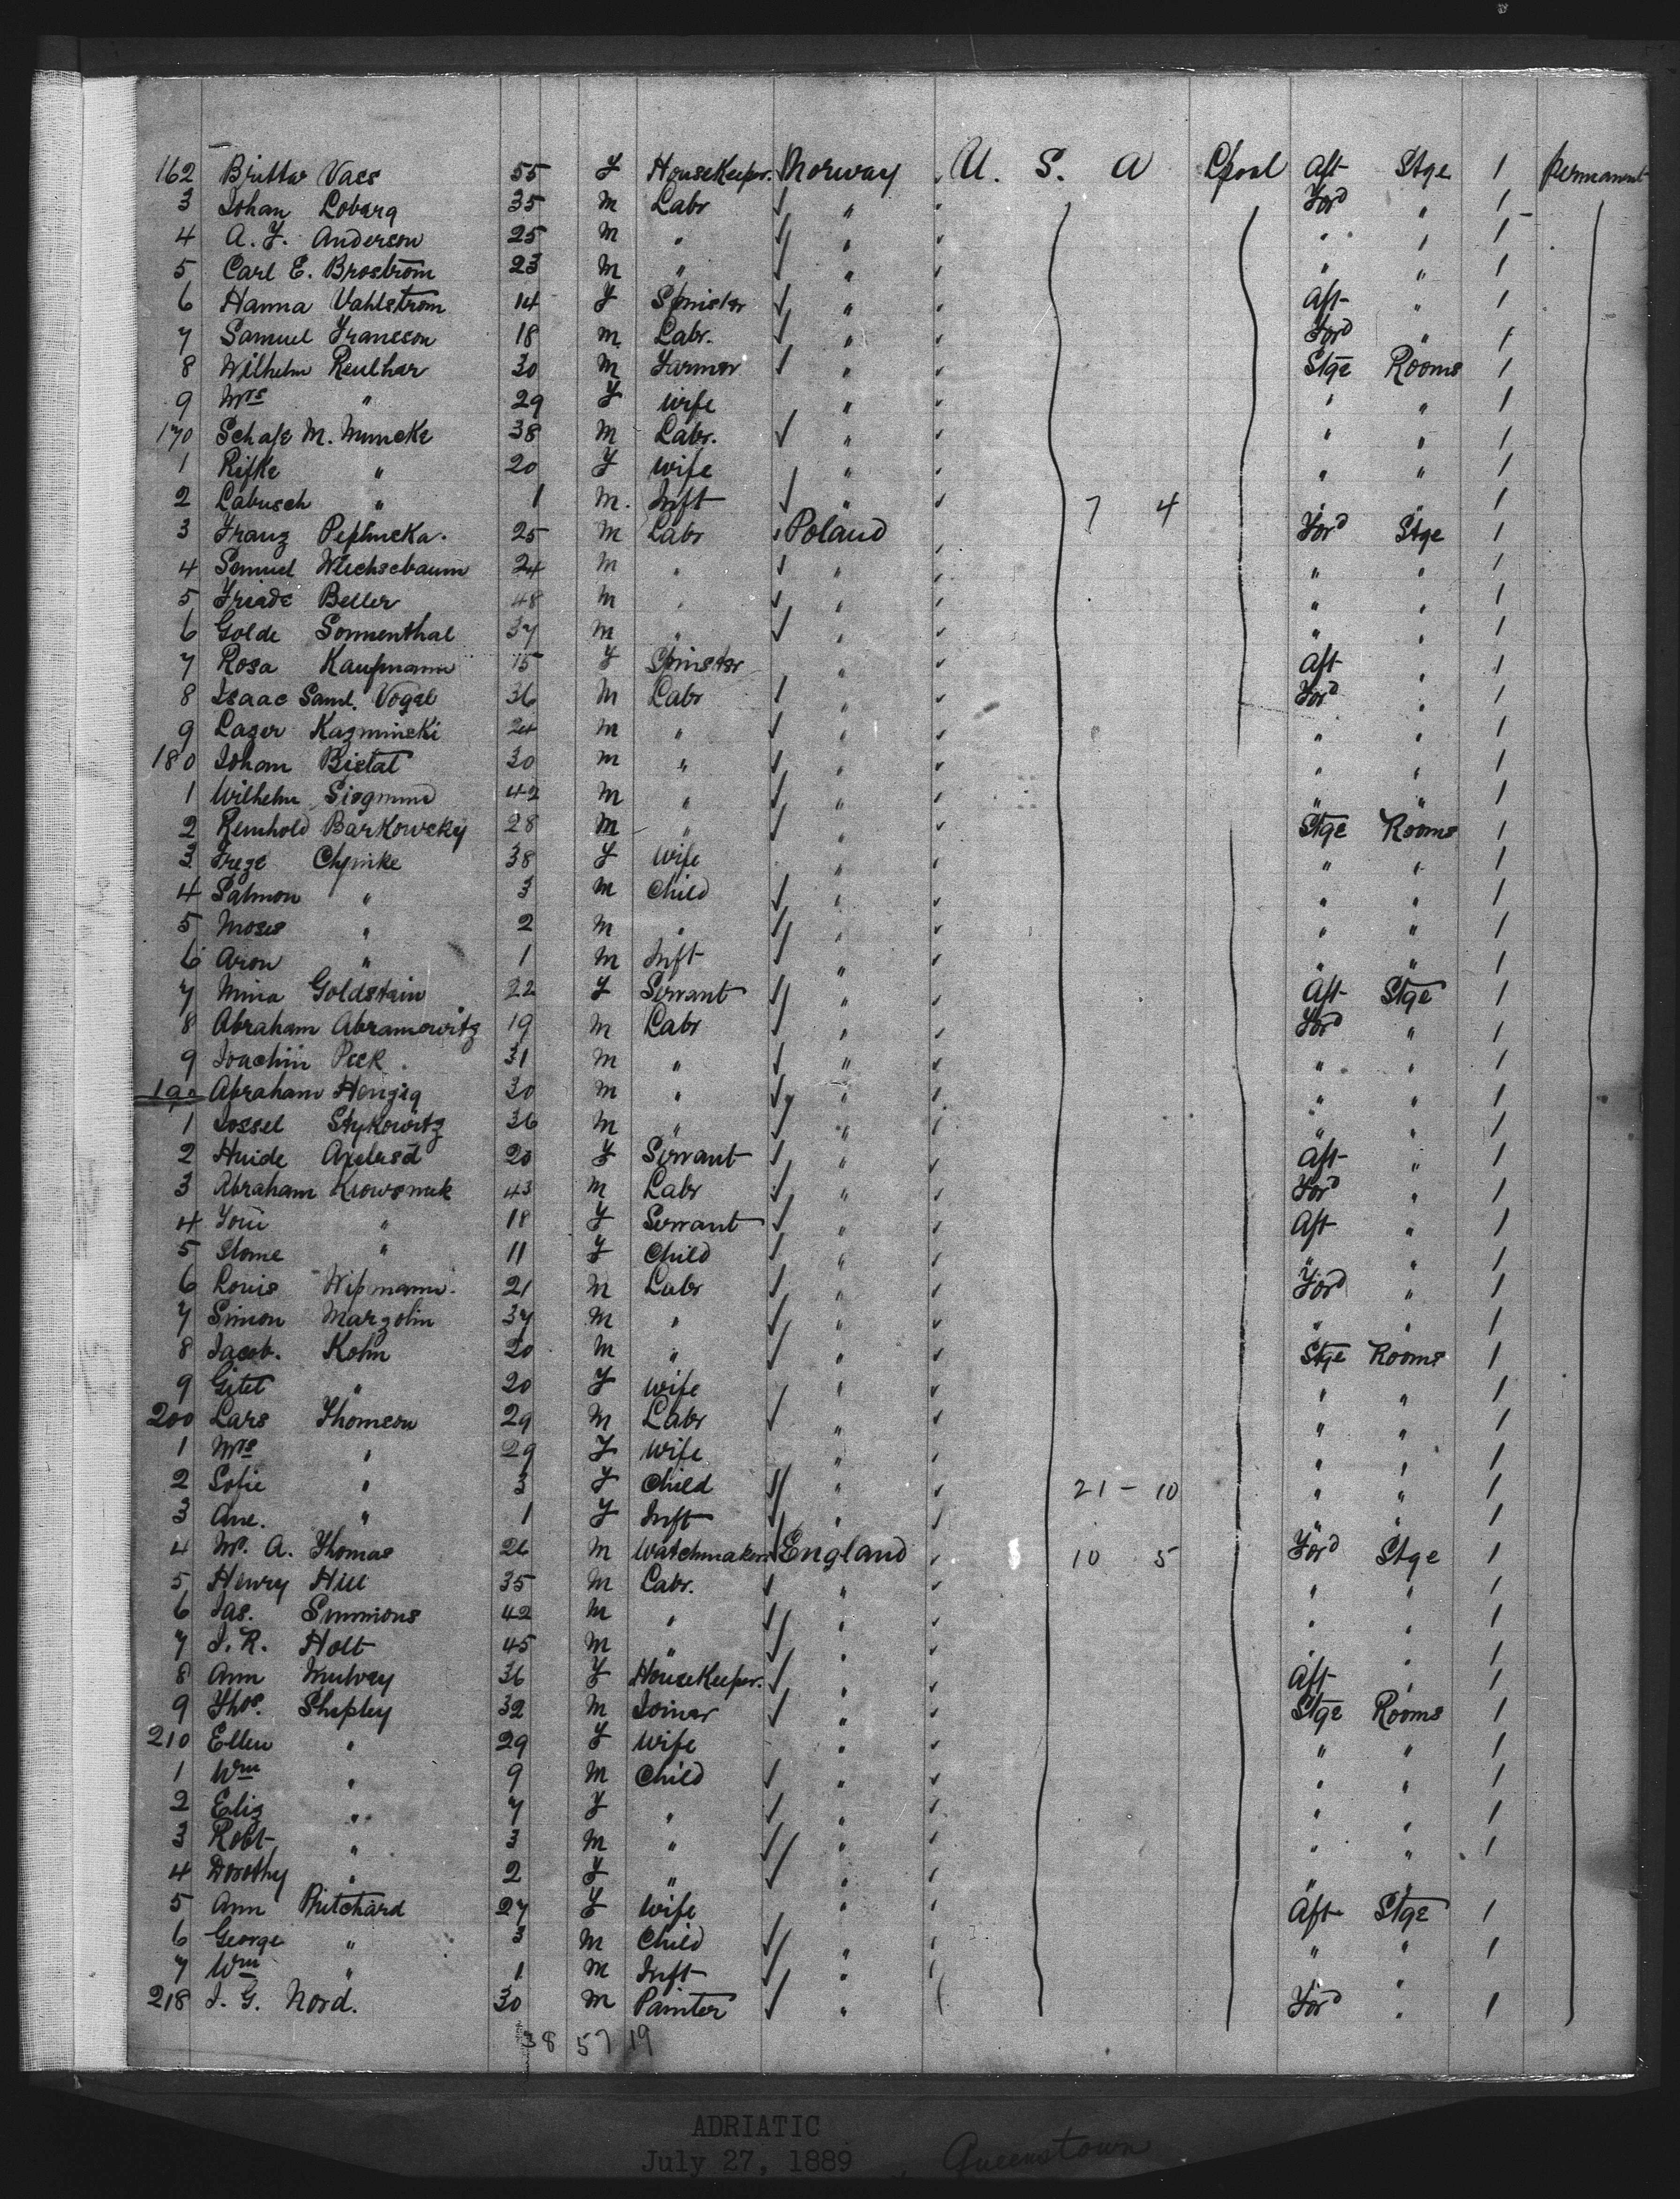 162 Britta Vacs 55 F HouseKeeper. Norway U. S. A Lpool Aft Stge 1 Permanent
3 Johan Loberg 35 M Labr " Ford " 1
4 A. F. Anderson 25 M " " " " 1
5 Carl E. Broström 23 M " " " " 1
6 Hanna Vahlstrom 14 F Spinster " Aft " 1
7 Samuel Francson 18 M Labr. " Ford " 1
8 Wilhelm Reulhar 30 M Farmer " Stge Rooms 1
9 Mrs " 29 F Wife " " " 1
170 Schafe M. Muncke 38 M Labr. " " " 1
1 Rifke " 20 F Wife " " " 1
2 Labusch " 1 M. Inft " 7 4 " " 1
3 Franz 25 M Labr Poland Ford Stge 1
4 Samuel Wechsebaum 24 M " " " " 1
5 Friade Beller 48 M " " " " 1
6 Golde Sonnenthal 37 M " " " " 1
7 Rosa Kaufmann 15 F Spinster " Aft " 1
8 Isaac Saml. Vogel 36 M Labr " Ford " 1
9 Lazer Kazminski 24 M " " " " 1
180 Johann Bistat 30 M " " " " 1
1 Wilhelm Siegmund 42 M " " " " 1
2 Reinhold Barkowsky 28 M " " Stge Rooms 1
3 Frege Chpinke 38 F Wife " " " 1
4 Salmon " 3 M Child " " " 1
5 Moses " 2 M " " " " 1
6 Aron " 1 M Inft " " " 1
7 Mina Goldstain 22 F Servant " Aft Stge 1
8 Abraham Abramowitz 19 M Labr " Ford " 1
9 Joachim Peck. 31 M " " " " 1
190 Abraham Henzig 30 M " " " " 1
1 Jossel Stykowitz 36 M " " " " 1
2 Huide Axelrod 20 F Servant " Aft " 1
3 Abraham 43 M Labr " Ford " 1
4 " 18 F Servant " Aft " 1
5 Slome " 11 F Child " " " 1
6 Louis Wipmann. 21 M Labr " Ford " 1
7 Simon Margolin 37 M " " " " 1
8 Jacob. Kohn 20 M " " Stge Rooms 1
9 Gitel " 20 F Wife " " " 1
200 Lars Thomson 29 M Labr " " " 1
1 Mrs " 29 F Wife " " " 1
2 Sofie " 3 F Child " 21 - 10 " " 1
3 Ane. " 1 F Inft " " " 1
4 W. A. Thomas 26 M Watchmaker England 10 5 Ford Stge 1
5 Henry Hill 35 M Labr. " " " 1
6 Jas. Simmons 42 M " " " " 1
7 J. R. Holt 45 M " " " " 1
8 Ann Mulvey 36 F HouseKeeper. " Aft " 1
9 Thos. Shepley 32 M Joiner " Stge Rooms 1
210 Ellen " 29 F Wife " " " 1
1 Wm " 9 M Child " " " 1
2 Eliz " 7 F " " " " 1
3 Robt " 3 M " " " " 1
4 Dorothy " 2 F " " " "
5 Ann Pritchard 27 F Wife " Aft Stge 1
6 George " 3 M Child " " " 1
7 Wm " 1 M Inft " "
218 J. G. Nord. 30 M Painter " Ford " 1
38 57 19
ADRIATIC
July 27, 1889 Queenstown